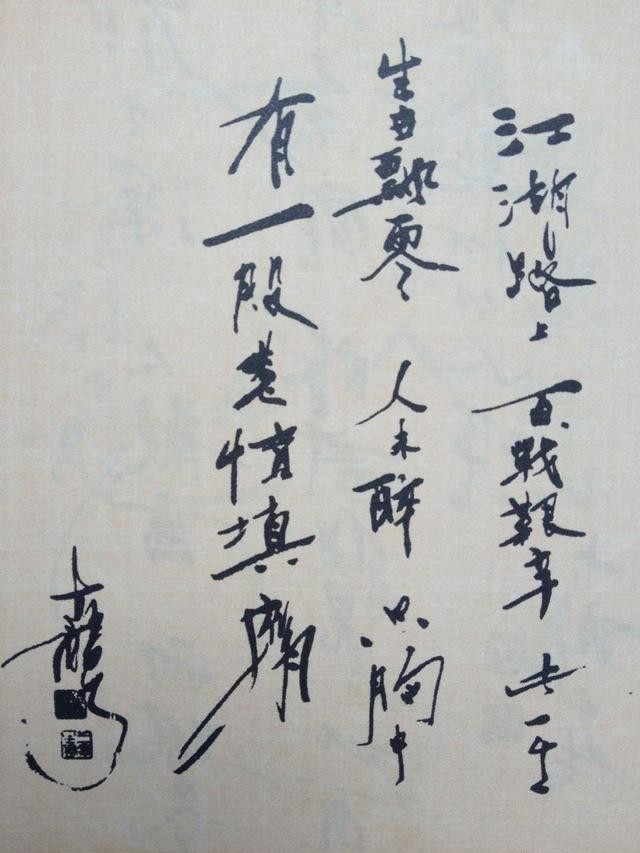 江湖路上 百戰艱辛
生飄零 人未醉 只胸中
有一段情填膺
古龍